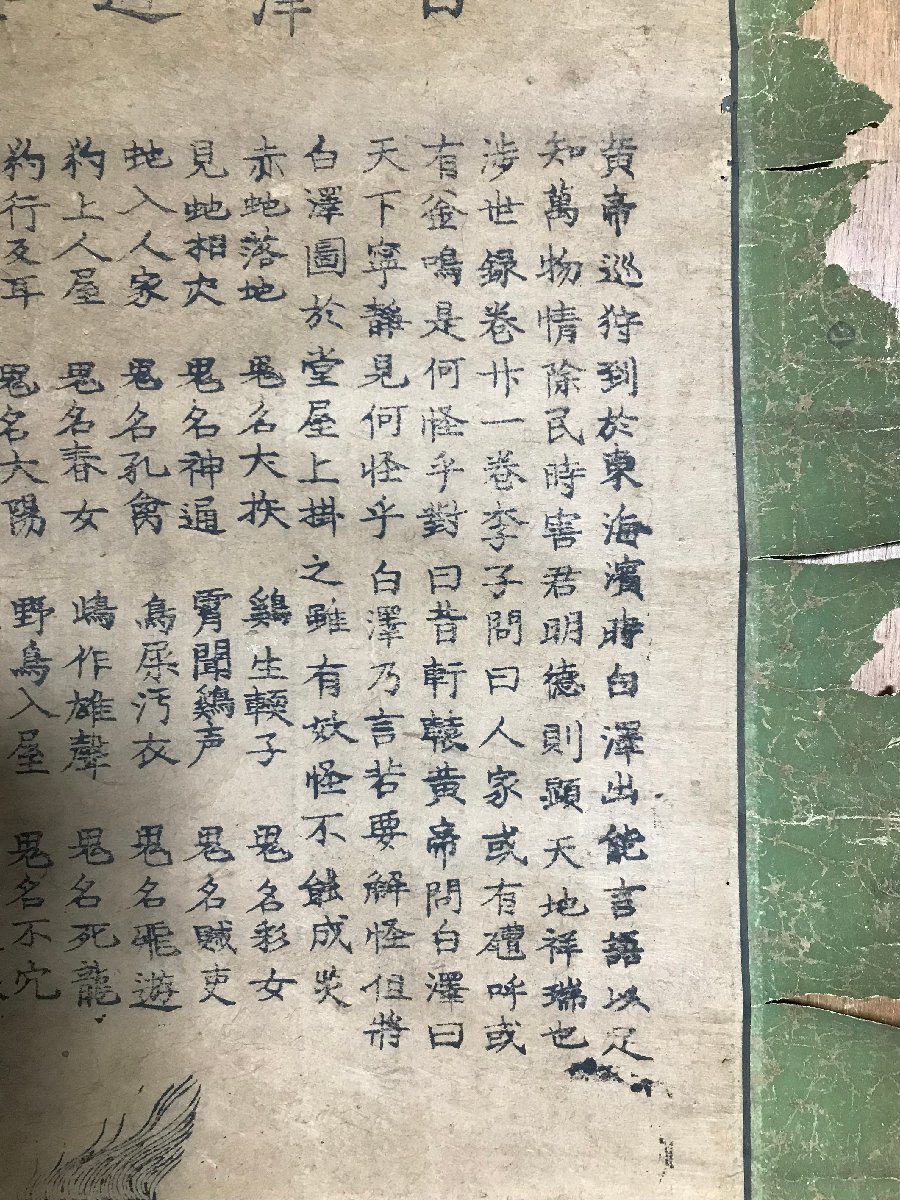 黄帝巡狩到於東海濱時白澤出能言語以足
知萬物情除民時害君明德則顯天地祥瑞也
渉世録卷廿一卷李子問曰人家或有 呼或
有釜鳴是何怪乎對曰昔軒轅黄帝問白澤曰
天下寧静見何怪乎白澤乃言若要解怪但將
白澤圖於堂屋上掛之雖有妖怪不能成災
赤虵落地 鬼名大扶 鷄生軟子 鬼名彩女
見虵相交 鬼名神通 霄聞鷄声 鬼名賊吏
虵入人家 鬼名孔禽 鳥屎汚衣 鬼名飛遊
狗上人屋 鬼名春女 作雄聲 鬼名死龍
狗行反耳 鬼名大陽 野鳥入屋 鬼名不穴